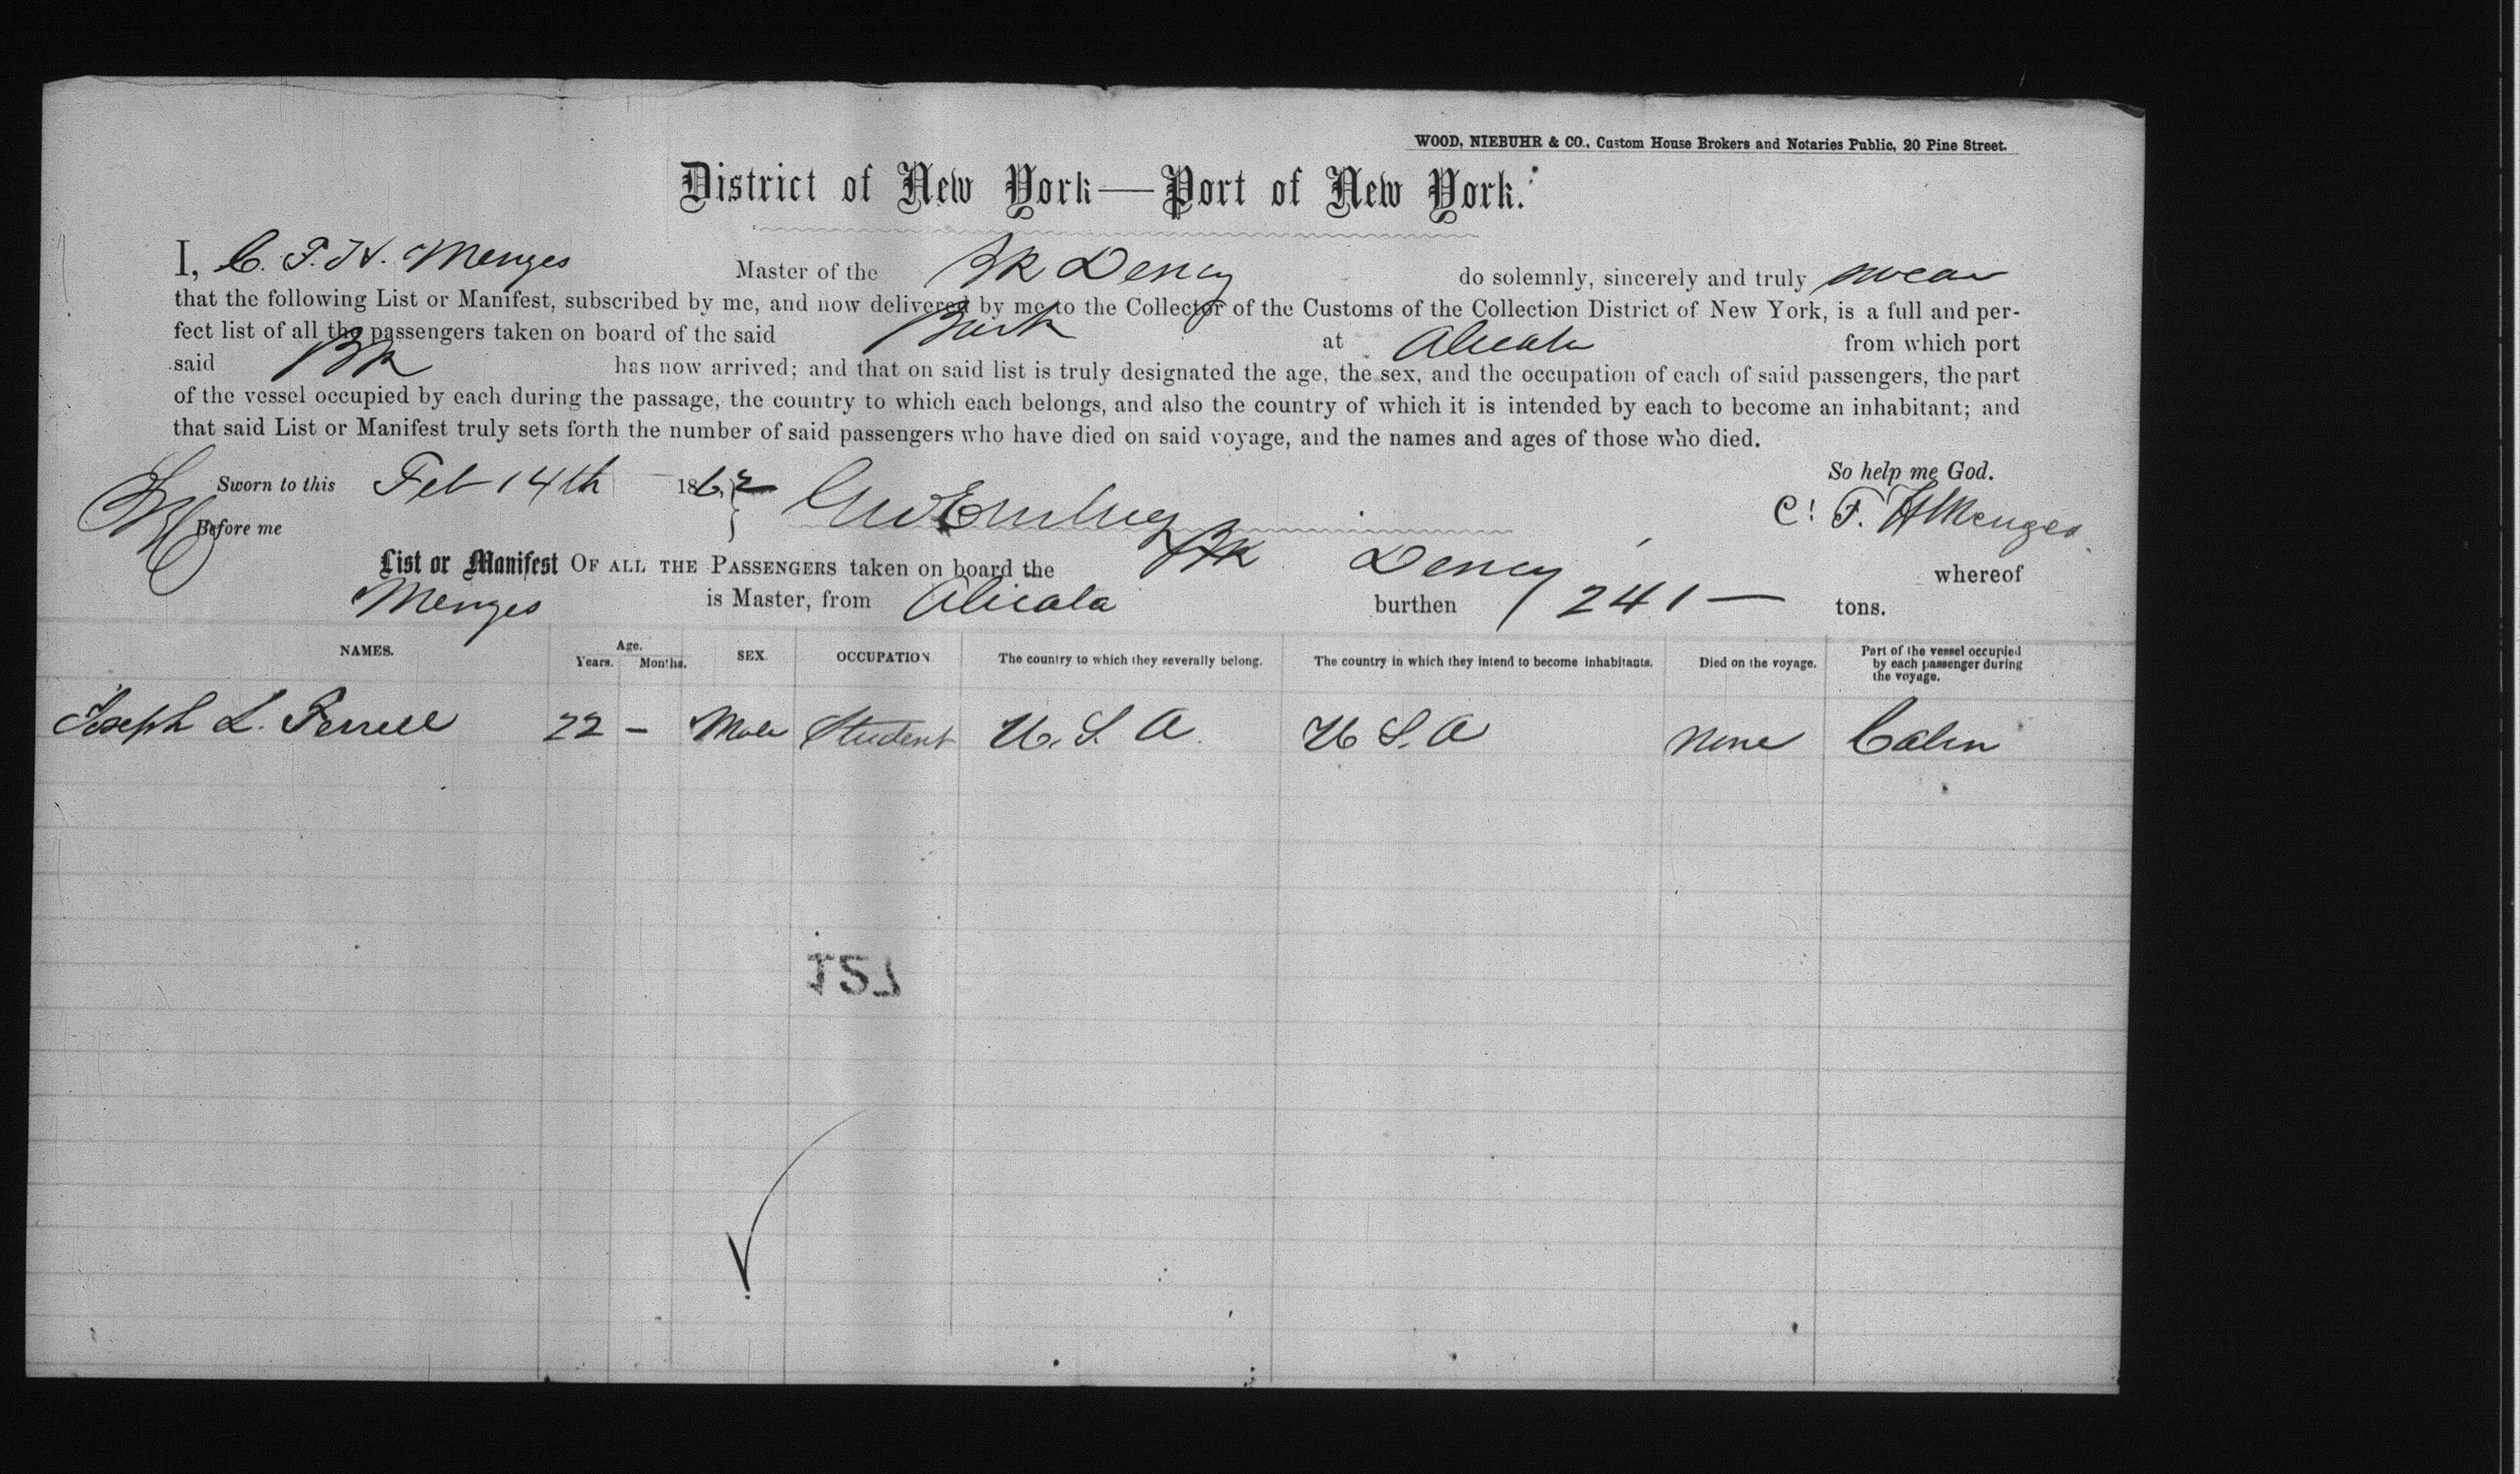 WOOD, NIEBUHR & CO., Custom House Brokers and Notaries Public, 20 Pine Street.
District of New York—Port of New York.
I, C. F. H. Menges Master of the Bk Dency do solemnly, sincerely and truly swear
that the following List or Manifest, subscribed by me, and now delivered by me to the Collector of the Customs of the Collection District of New York, is a full and per-
fect list of all the passengers taken on board of the said Bark at Alicata from which port
said Bk has now arrived; and that on said list is truly designated the age, the sex, and the occupation of each of said passengers, the part
of the vessel occupied by each during the passage, the country to which each belongs, and also the country of which it is intended by each to become an inhabitant; and
that said List or Manifest truly sets forth the number of said passengers who have died on said voyage, and the names and ages of those who died.
Sworn to this Feb 14th 1862 So help me God.
Before me C. F. H Menges
List or Manifest OF ALL THE PASSENGERS taken on board the Bk Dency whereof
Menges is Master, from Alicata burthen 241 — tons.
NAMES. Age. Years. Months. SEX. OCCUPATION The country to which they severally belong. The country in which they intend to become inhabitants. Died on the voyage. Part of the vessel occupied by each passenger during the voyage.
Joseph L. Ferrell 22 – Male Student U. S. A. U S. A None Cabin
157